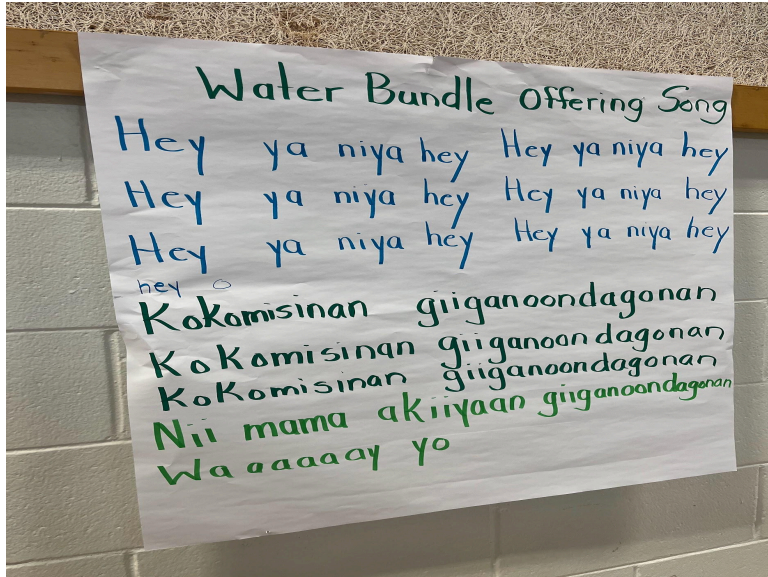 Water Bundle Offering Song
Hey ya niya hey Hey ya niya hey
Hey ya niya hey Hey ya niya hey
Hey ya niya hey Hey ya niya hey
hey o
Kokomisinan giiganoondagonan
KoKomisinan giiganoondagonan
KoKomisinan giiganoondagonan
Nii mama akiiyaan giiganoondagonan
Waaaaaay yo